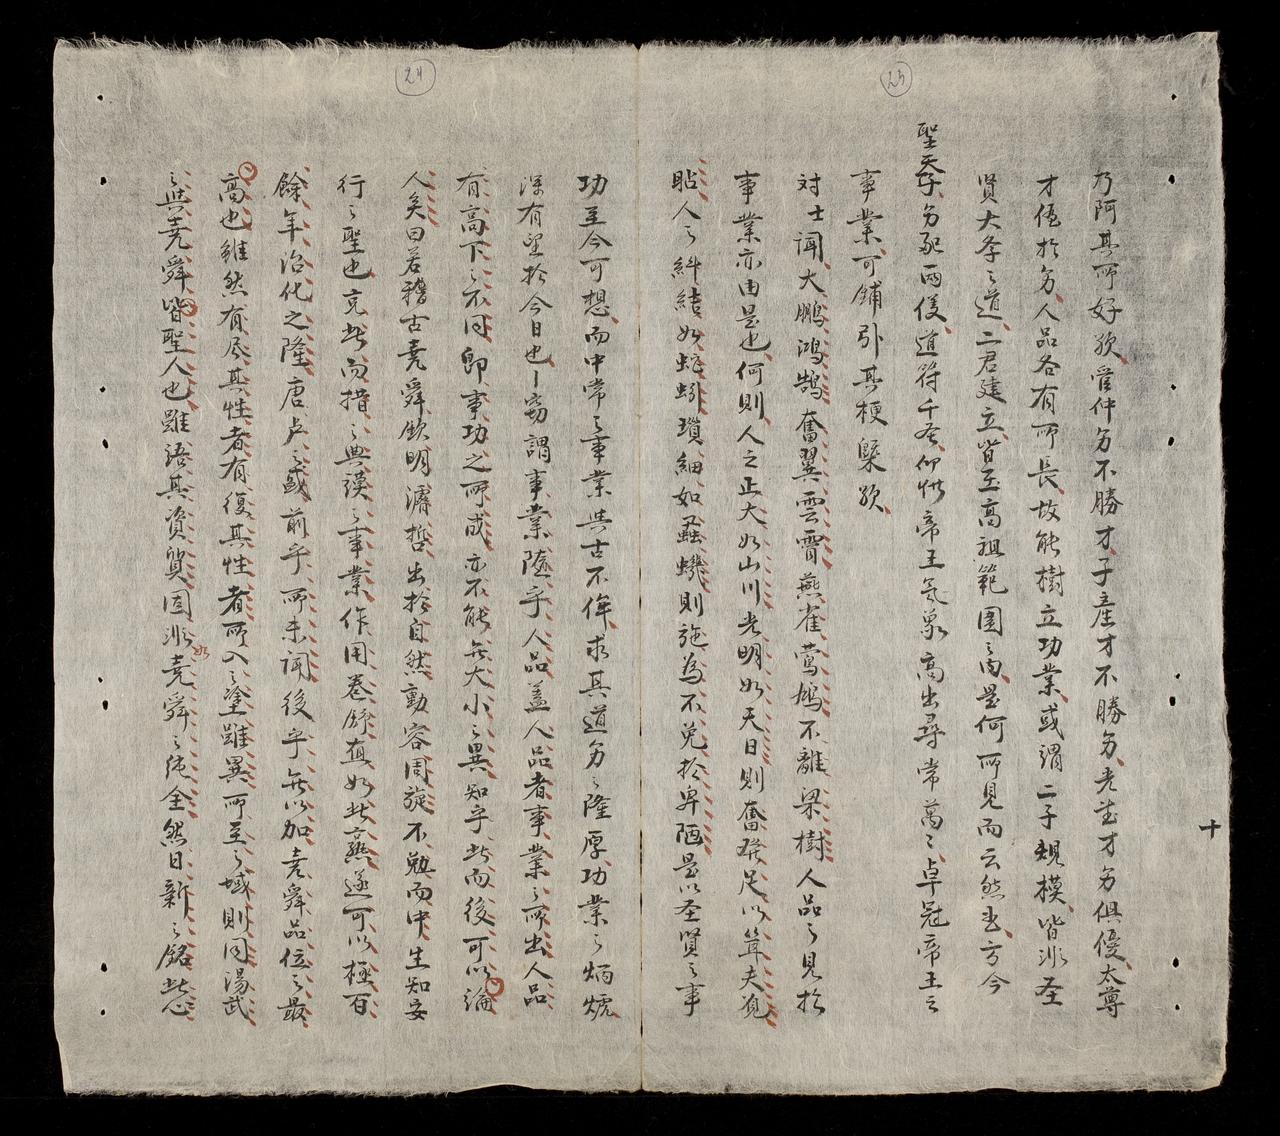 乃阿其所好欤管仲分不勝才子產才不勝分先生才分俱優太尊
才優於分人品各有所長故能樹立功業或謂二子規模皆非圣
賢大學之道二君建立皆至高祖範圍之內是何所見而云然欤方今
聖天子分配兩儀道符千圣仰惟帝王氣象高出尋常萬之卓冠帝王之
事業可鋪引其梗槩欤
对士謂大鵬鴻鵠奮翼雲霄燕雀鶯鳩不離梁樹人品之見於
事業亦由是也何則人之正大如山川光明如天日則奮發足以聳夫覌
贴人之糾結如蛇蚓瑣細如蟲蟣則施為不免於卑陋是以圣賢之事
功至今可想而中常之事業與古不侔求其道分之隆厚功業之炳煥
深有望於今日也窃謂事業隨乎人品盖人品者事業之所出人品
有高下之不同即事功之所成亦不能無大小之異知乎此而後可以論
人矣曰若稽古堯舜欽明濬哲出於自然動容周旋不勉而中生知安
行之聖也克此而措之典謨之事業作用卷舒真如此熙遂可以極百
餘年治化之隆唐虞之盛前乎所未聞後乎無以加堯舜品位之最
高也雖然有尽其性者有復其性者所入之塗雖異所至之域則同湯武
之與堯舜皆聖人也雖語其資質固非如堯舜之純全然日新之銘此心
24
25
十